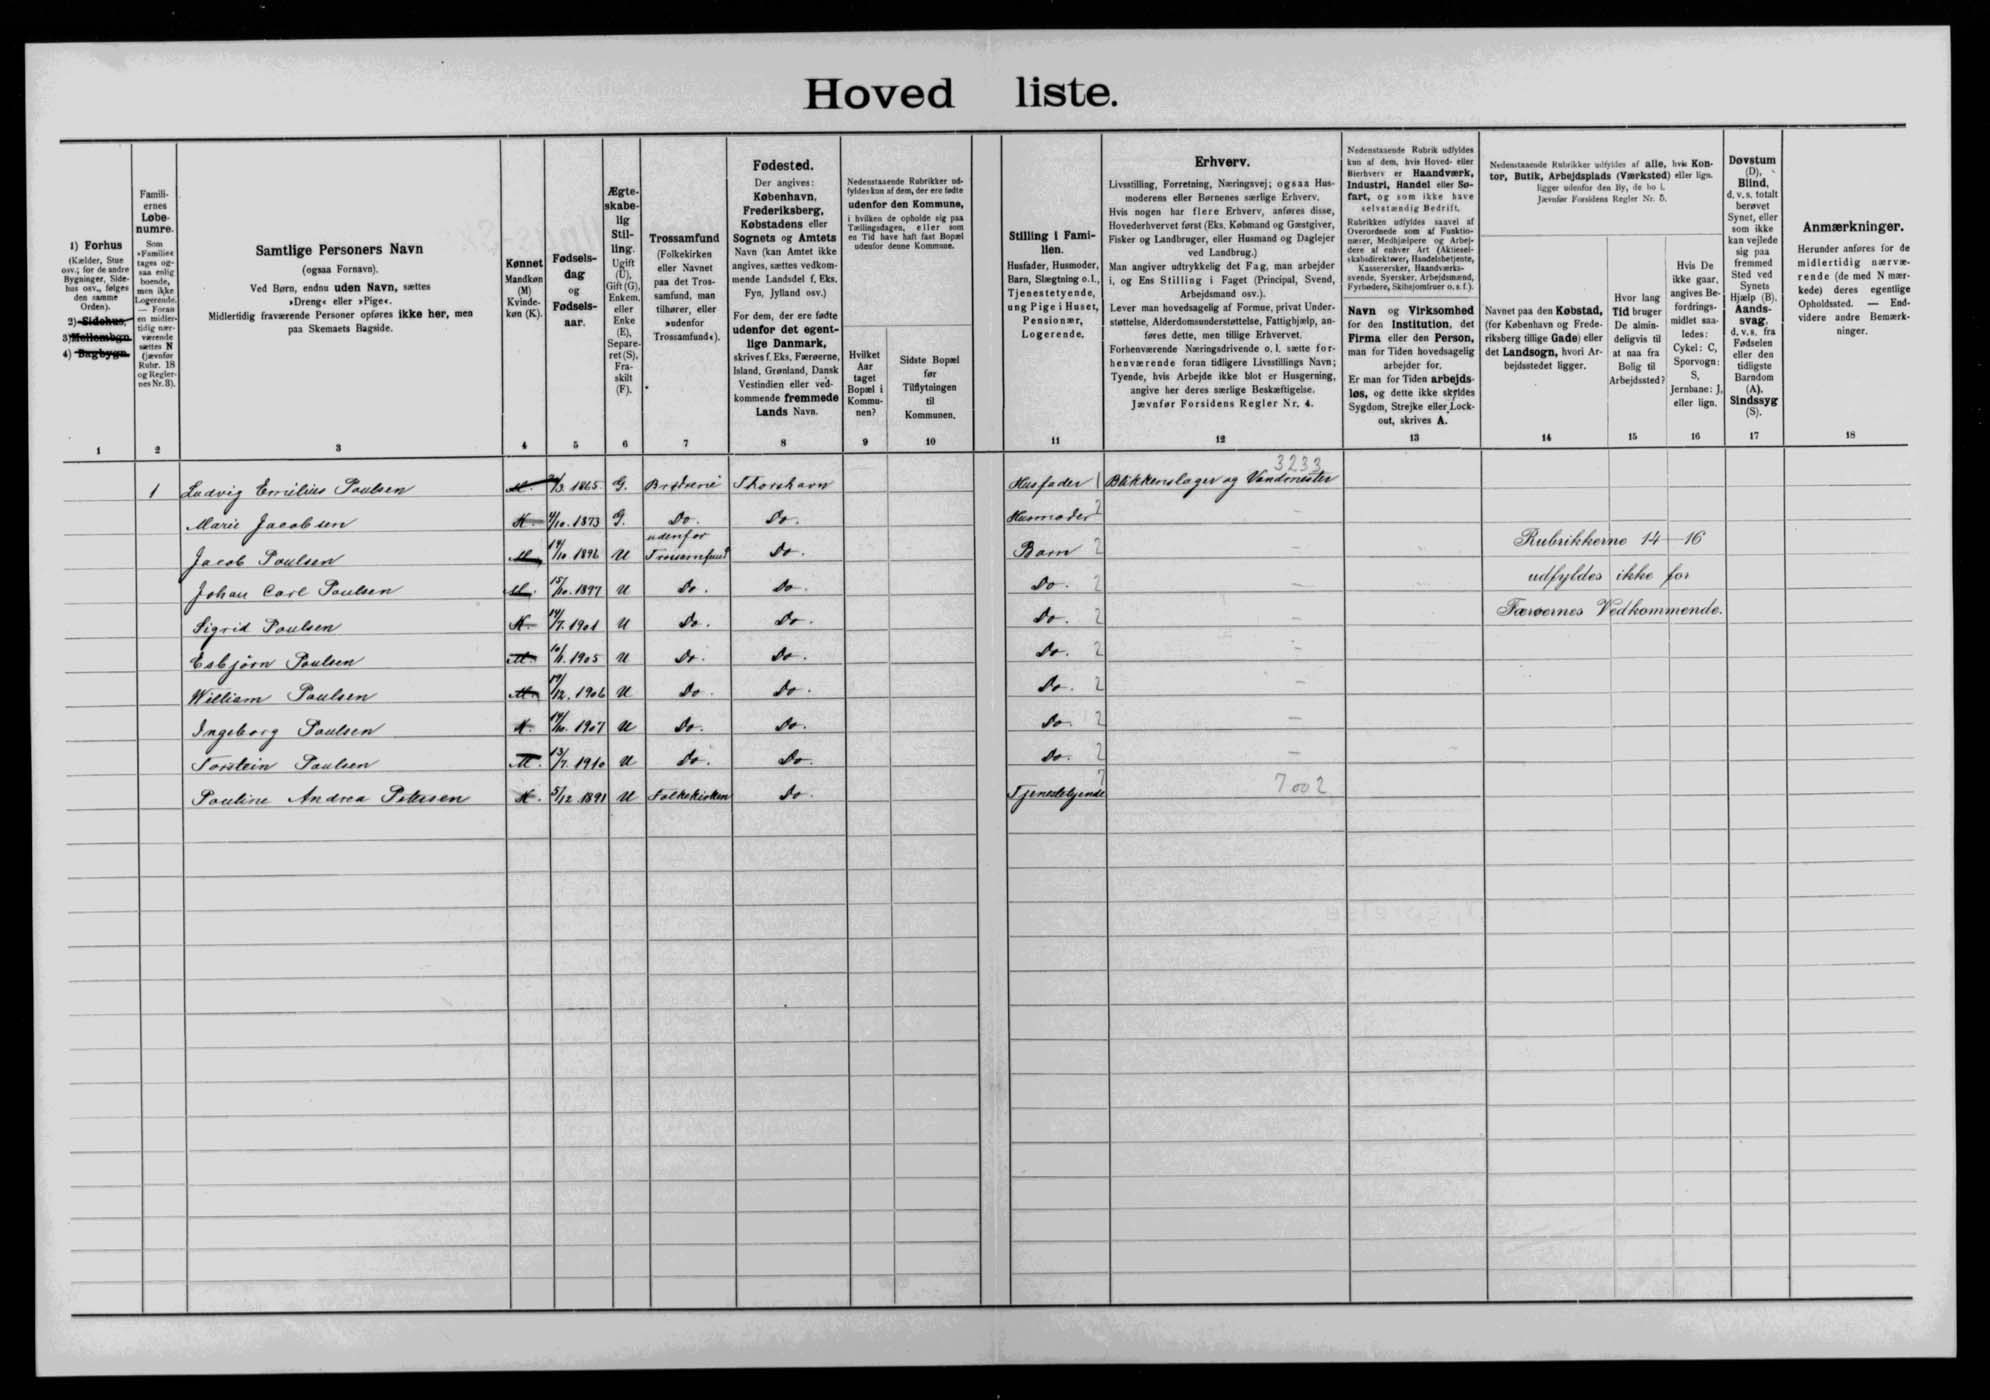 Hoved liste.
1) Forhus
(Kælder, Stue
osv.; for de andre
Bygninger, Side-
hus osv., følges
den samme
Orden).
2) Sidehus,
3) Mellembgn.
4) Bagbygn.
Famili-
ernes
Løbe-
numre.
Som
»Familie«
tages og-
saa enlig
boende,
men ikke
Logerende.
— Foran
en midler-
tidig nær-
værende
sættes N
(jævnfør
Rubr. 18
og Regler-
nes Nr. 3).
Samtlige Personers Navn
(ogsaa Fornavn).
Ved Børn, endnu uden Navn, sættes
»Dreng« eller »Pige«.
Midlertidig fraværende Personer opføres ikke her, men
paa Skemaets Bagside.
Kønnet
Mandkøn
(M)
Kvinde-
køn (K).
Fødsels-
dag
og
Fødsels-
aar.
Ægte-
skabe-
lig
Stil-
ling.
Ugift
(U),
Gift (G),
Enkem.
eller
Enke
(E),
Separe-
ret (S),
Fra-
skilt
(F).
Trossamfund
(Folkekirken
eller Navnet
paa det Tros-
samfund, man
tilhører, eller
»udenfor
Trossamfund«).
Fødested.
Der angives:
København,
Frederiksberg,
Købstadens eller
Sognets og Amtets
Navn (kan Amtet ikke
angives, sættes vedkom-
mende Landsdel f. Eks.
Fyn, Jylland osv.)
For dem, der ere fødte
udenfor det egent-
lige Danmark,
skrives f. Eks, Færøerne,
Island, Grønland, Dansk
Vestindien eller ved-
kommende fremmede
Lands Navn.
Nedenstaaende Rubrikker ud-
fyldes kun af dem, der ere fødte
udenfor den Kommune,
i hvilken de opholde sig paa
Tællingsdagen, eller som
en Tid have haft fast Bopæl
udenfor denne Kommune.
Hvilket
Aar
taget
Bopæl i
Kommu-
nen?
Sidste Bopæl
før
Tilflytningen
til
Kommunen.
Stilling i Fami-
lien.
Husfader, Husmoder,
Barn, Slægtning o.l.,
Tjenestetyende,
ung Pige i Huset,
Pensionær,
Logerende.
Erhverv.
Livsstilling, Forretning, Næringsvej; ogsaa Hus-
moderens eller Børnenes særlige Erhverv.
Hvis nogen har flere Erhverv, anføres disse,
Hovederhvervet først (Eks. Købmand og Gæstgiver,
Fisker og Landbruger, eller Husmand og Daglejer
ved Landbrug.)
Man angiver udtrykkelig det Fag, man arbejder
i, og Ens Stilling i Faget (Principal, Svend,
Arbejdsmand osv.).
Lever man hovedsagelig af Formue, privat Under-
støttelse, Alderdomsunderstøttelse, Fattighjælp, an-
føres dette, men tillige Erhvervet.
Forhenværende Næringsdrivende o. l. sætte for-
henværende foran tidligere Livsstillings Navn;
Tyende, hvis Arbejde ikke blot er Husgerning,
angive her deres særlige Beskæftigelse.
Jævnfør Forsidens Regler Nr. 4.
Nedenstaaende Rubrik udfyldes
kun af dem, hvis Hoved- eller
Bierhverv er Haandværk,
Industri, Handel eller Sø-
fart, og som ikke have
selvstændig Bedrift.
Rubrikken udfyldes saavel af
Overordnede som af Funktio-
nærer, Medhjælpere og Arbej-
dere af enhver Art (Aktiesel-
skabsdirektører, Handelsbetjente,
Kassererersker, Haandværks-
svende, Syersker, Arbejdsmænd,
Fyrbødere, Skibsjomfruer o. s. f.).
Navn og Virksomhed
for den Institution, det
Firma eller den Person,
man for Tiden hovedsagelig
arbejder for.
Er man for Tiden arbejds-
løs, og dette ikke skyldes
Sygdom, Strejke eller Lock-
out, skrives A.
Nedenstaaende Rubrikker udfyldes af alle, hvis Kon-
tor, Butik, Arbejdsplads (Værksted) eller lign.
ligger udenfor den By, de bo i.
Jævnfør Forsidens Regler Nr. 5.
Navnet paa den Købstad,
(for København og Frede-
riksberg tillige Gade) eller
det Landsogn, hvori Ar-
bejdsstedet ligger.
Hvor lang
Tid bruger
De almin-
deligvis til
at naa fra
Bolig til
Arbejdssted?
Hvis De
ikke gaar,
angives Be-
fordrings-
midlet saa-
ledes:
Cykel: C,
Sporvogn:
S,
Jernbane: J,
eller lign.
Døvstum
(D),
Blind,
d. v. s. totalt
berøvet
Synet, eller
som ikke
kan vejlede
sig paa
fremmed
Sted ved
Synets
Hjælp (B),
Aands-
svag,
d. v. s. fra
Fødselen
eller den
tidligste
Barndom
(A).
Sindssyg
(S).
Anmærkninger.
Herunder anføres for de
midlertidig nærvæ-
rende (de med N mær-
kede) deres egentlige
Opholdssted. — End-
videre andre Bemærk-
ninger.
1 2 3 4 5 6 7 8 9 10 11 12 13 14 15 16 17 18
3233
1 Ludvig Emilius Poulsen M. /3 1865 G. Brødrene Thorshavn Husfader 1 Blikkenslager og Vandmester
Marie Jacobsen K. 4/10. 1873 G. Do. Do. Husmoder 2 –
Jacob Poulsen M 14/10 1896 U udenfor Trossamfund Do. Barn 2 – Rubrikkerne 14–16
Johan Carl Poulsen M. 15/10. 1897 U Do. Do. Do. 2 – udfyldes ikke for
Sigrid Poulsen K. 14/7. 1901 U Do. Do. Do. 2 – Færøernes Vedkommende.
Esbjørn Poulsen M. 10/1. 1905 U Do. Do. Do. 2 –
William Poulsen M. 19/12. 1906 U Do. Do. Do. 2 –
Ingeborg Poulsen K. 14/10. 1907 U Do. Do. Do. 2 –
Torstein Poulsen M. 13/7. 1910 U Do. Do. Do. 2 –
Pouline Andrea Petersen K. 5/12. 1891 U Folkekirken Do. Tjenestetyende 7 7002